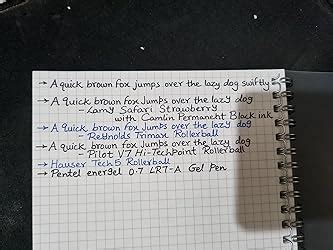 → A quick brown fox jumps over the lazy dog swiftly
→ A quick brown fox jumps over the lazy dog
- Lamy Safari Strawberry
with Camlin Permanent Black ink
→ A quick brown fox jumps over the lazy dog
- Reynolds Trimax Rollerball
→ A quick brown fox jumps over the lazy dog
Pilot V7 Hi-Techpoint Rollerball
→ Hauser Tech 5 Rollerball
→ Pentel energel 0.7 LR7-A Gel Pen